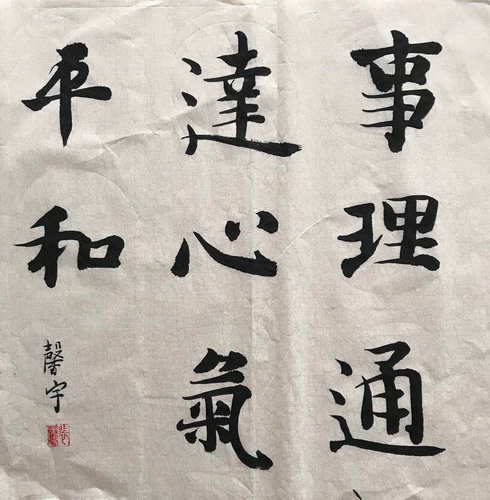 事理通
達心氣
平和
馨宇